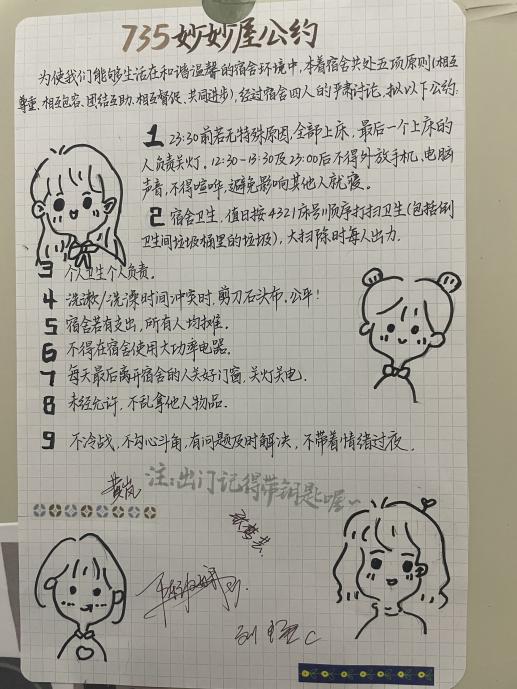 735妙妙屋公约
为使我们能够生活在和谐温馨的宿舍环境中,本着宿舍共处五项原则(相互
尊重、相互包容、团结互助、相互督促、共同进步),经过宿舍四人的严肃讨论,拟以下公约:
1 23:30前若无特殊原因,全部上床,最后一个上床的
人负责关灯。12:30-13:30及23:00后不得外放手机、电脑
声音,不得喧哗,避免影响其他人就寝。
2 宿舍卫生,值日按4321床号顺序打扫卫生(包括倒
卫生间垃圾桶里的垃圾),大扫除时每人出力.
3 个人卫生个人负责.
4 洗漱/洗澡时间冲实时,剪刀石头布.公平!
5 宿舍若有支出,所有人均摊.
6 不得在宿舍使用大功率电器.
7 每天最后离开宿舍的人关好门窗,关灯关电.
8 未经允许,不乱拿他人物品.
9 不冷战,不勾心斗角,有问题及时解决,不带着情绪过夜.
注:出门记得带钥匙喔~
黄岚